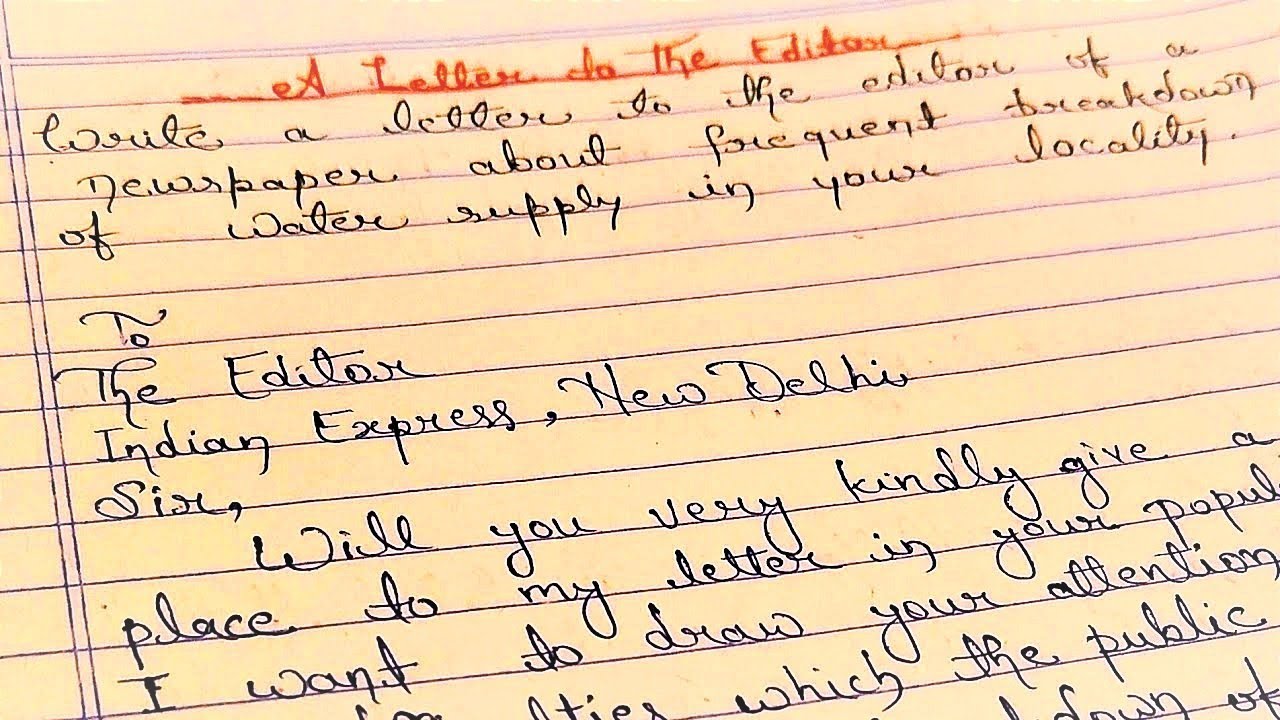 A Letter to the Editor
Write a letter to the editor of a
newspaper about frequent breakdown
of water supply in your locality.
To
The Editor
Indian Express, New Delhi
Sir,
Will you very kindly give a
place to my letter in your popul
I want to draw your attention
lties which the public
down of